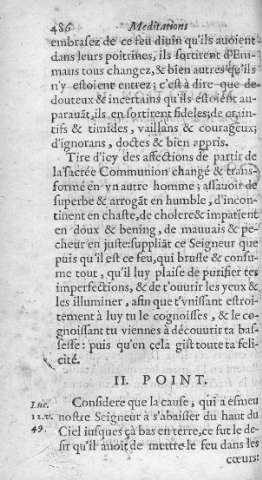 486 Meditations
embrasez de ce feu diuin qu'ils auoient
dans leurs poitrines, ils sortirent d'Em-
maus tous changez, & bien autres qu'ils
n'y estoient entrez; c'est à dire que de
douteux & incertains qu'ils estoient au-
parauāt, ils en sortirent fideles; de crain-
tifs & timides, vaillans & courageux;
d'ignorans, doctes & bien appris.
Tire d'icy des affections de partir de
la sacrée Communion changé & trans-
formé en vn autre homme; assauoir de
superbe & arrogāt en humble, d'incon-
tinent en chaste, de cholere & impatient
en doux & bening, de mauuais & pe-
cheur en iuste: suppliāt ce Seigneur que
puis qu'il est ce feu, qui brusle & consu-
me tout, qu'il luy plaise de purifier tes
imperfections, & de t'ouurir les yeux &
les illuminer, afin que t'vnissant estroi-
tement à luy tu le cognoisses, & le co-
gnoissant tu viennes à découurir ta bas-
sesse: puis qu'en cela gist toute ta feli-
cité.
II. POINT.
Luc. Considere que la cause, qui a esmeu
12. v. nostre Seigneur à s'abaisser du haut du
49. Ciel iusques çà bas en terre, ce fut le de-
sir qu'il auoit de mettre le feu dans les
cœurs: